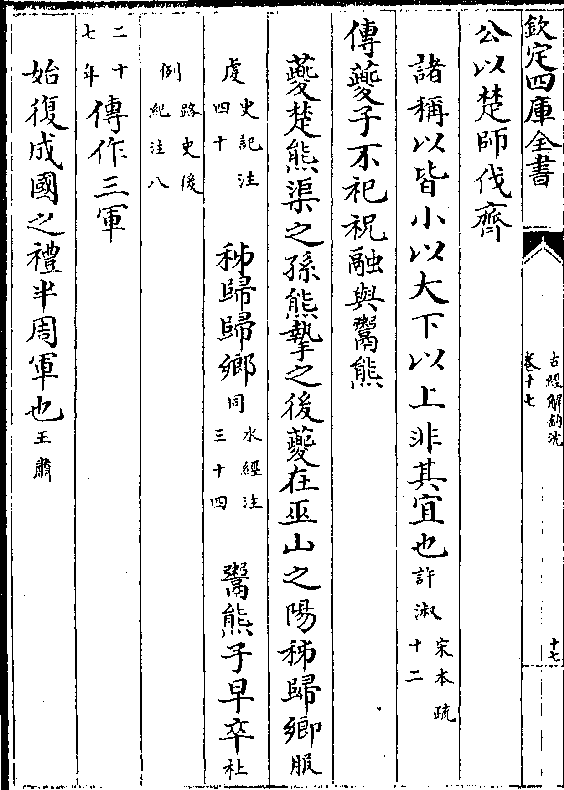 欽定四庫全書
古經解鉤沈
卷十七
十七
公以楚師伐齊
諸稱以皆小以大下以上非其宜也許淑宋本疏十二
傳夔子不祀祝融與鬻熊
夔楚熊渠之孫熊摯之後夔在巫山之陽秭歸鄉服
虔史記注四十秭歸歸鄉同水經注三十四鬻熊子早卒杜
例路史後紀注八
二十七年傳作三軍
始復成國之禮半周軍也王肅